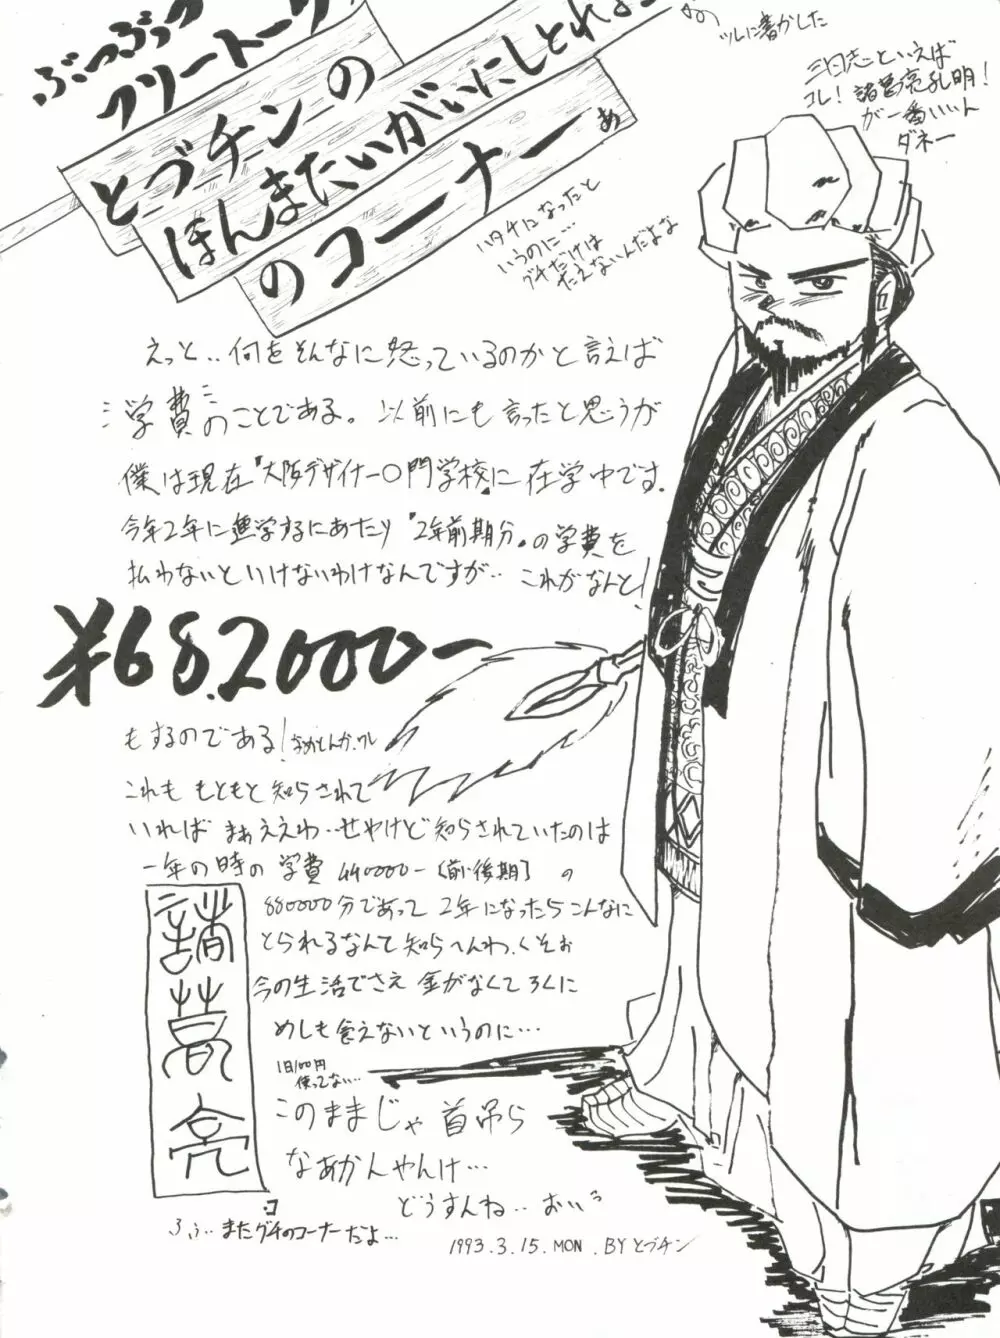 ぶつぶつ
フリートーク
とブチンの
ほんまたいがいにしとれよー
のコーナー
ツレに書かした
三国志といえば
コレ！諸葛亮孔明！
が一番いいん
ダネー
ハタチになったと
いうのに…
グチだけは
たえないんだよな
えっと‥何をそんなに怒っているのかと言えば
学費のことである。以前にも言ったと思うが
僕は現在『大阪デザイナー〇門学校』に在学中です。
今年2年に進学するにあたり『2年前期分』の学費を
払わないといけないわけなんですが‥これがなんと！
¥682000-
もするのである！
これももともと知らされて
いればまぁええわ‥せやけど知らされていたのは
一年の時の学費440000-〔前・後期〕の
880000分であって2年になったらこんなに
とられるなんて知らへんわ、くそぉ
今の生活でさえ金がなくてろくに
めしも食えないというのに…
1日100円
使ってない…
このままじゃ首吊ら
なあかんやんけ…
どうすんね‥おいっ
諸葛亮
ふぅ‥またグチのコーナーだよ…
1993.3.15.MON.BYとブチン